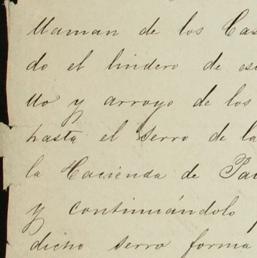 llaman de los Cas
do el lindero de es
llo y arroyo de los
hasta el Serro de la
la Hacienda de Pa
y continuándolo
dicho serro forma